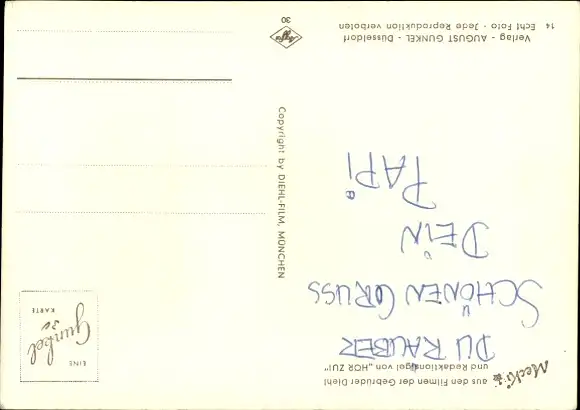 Mecki
aus den Filmen der Gebrüder Diehl
und Redaktionsigel von „HÖR ZU!"
DU RAUBER
SCHÖNEN GRUSS
DEiN
PAPi
Verlag - AUGUST GUNKEL - Düsseldorf
14 Echt Foto - Jede Reproduktion verboten
Copyright by DIEHL-FILM, MÜNCHEN
EINE
Gunkel
KARTE
Agfa
30